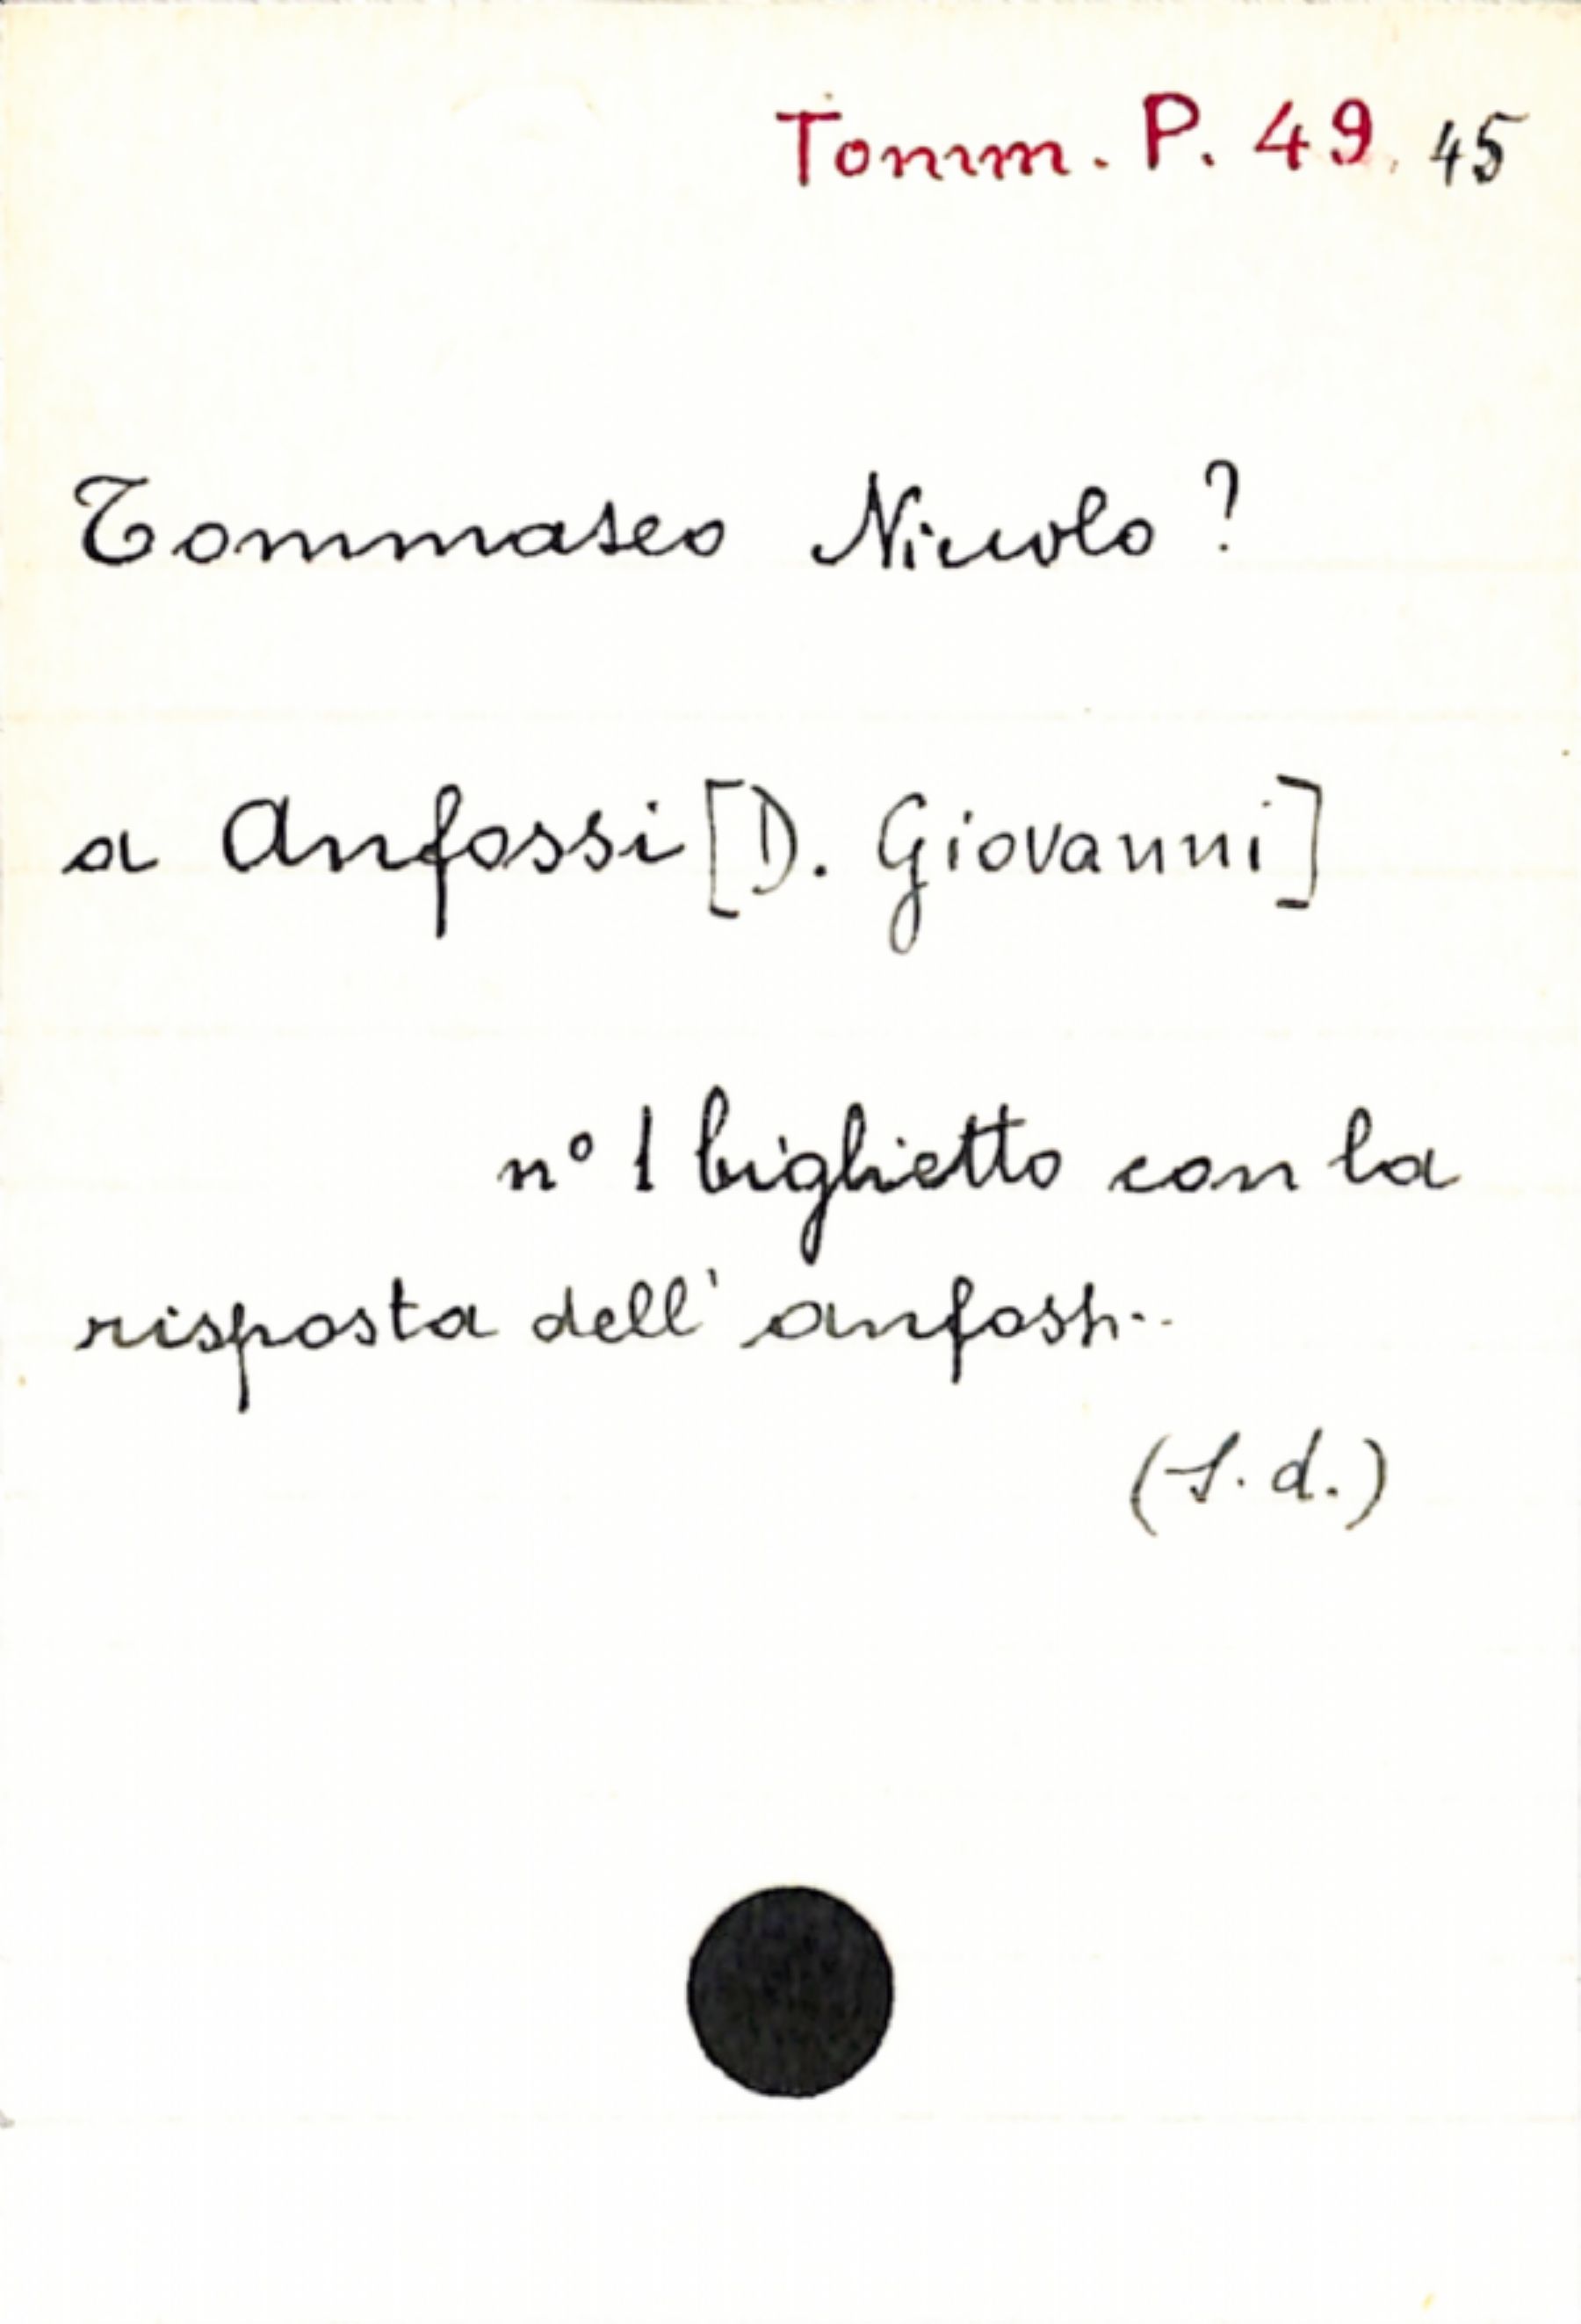 Tomm. P. 49, 45
Tommaseo Niccolo ?
a Anfossi [D. Giovanni]
n° 1 biglietto con la
risposta dell' Anfossi..
(S. d.)